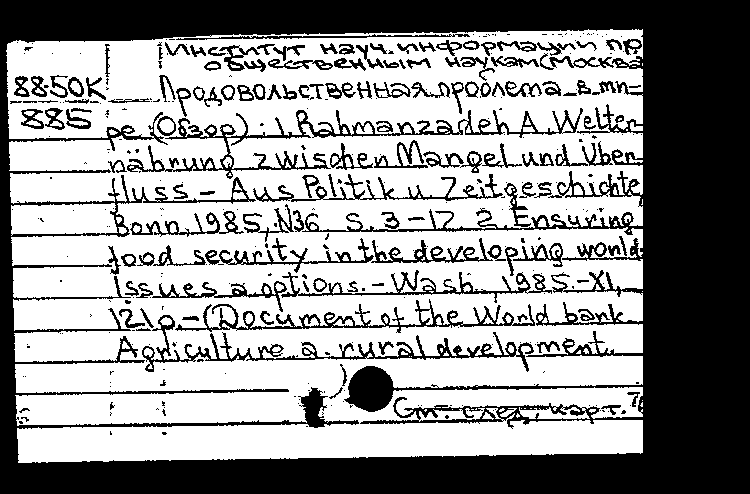 Институт науч. информации по
общественным наукам (Москва
8850К
885
Продовольственная проблема в ми-
ре: (Обзор) : 1. Rahmanzadeh A. Welter-
nährung zwischen Mangel und Über-
fluss. - Aus Politik u. Zeitgeschichte,
Bonn, 1985, N36, S. 3-17. 2. Ensuring
food security in the developing world:
Issues a. options. - Wash., 1985. - XI,
121p. - (Document of the World bank.
Agriculture a. rural development.
См. след. карт.